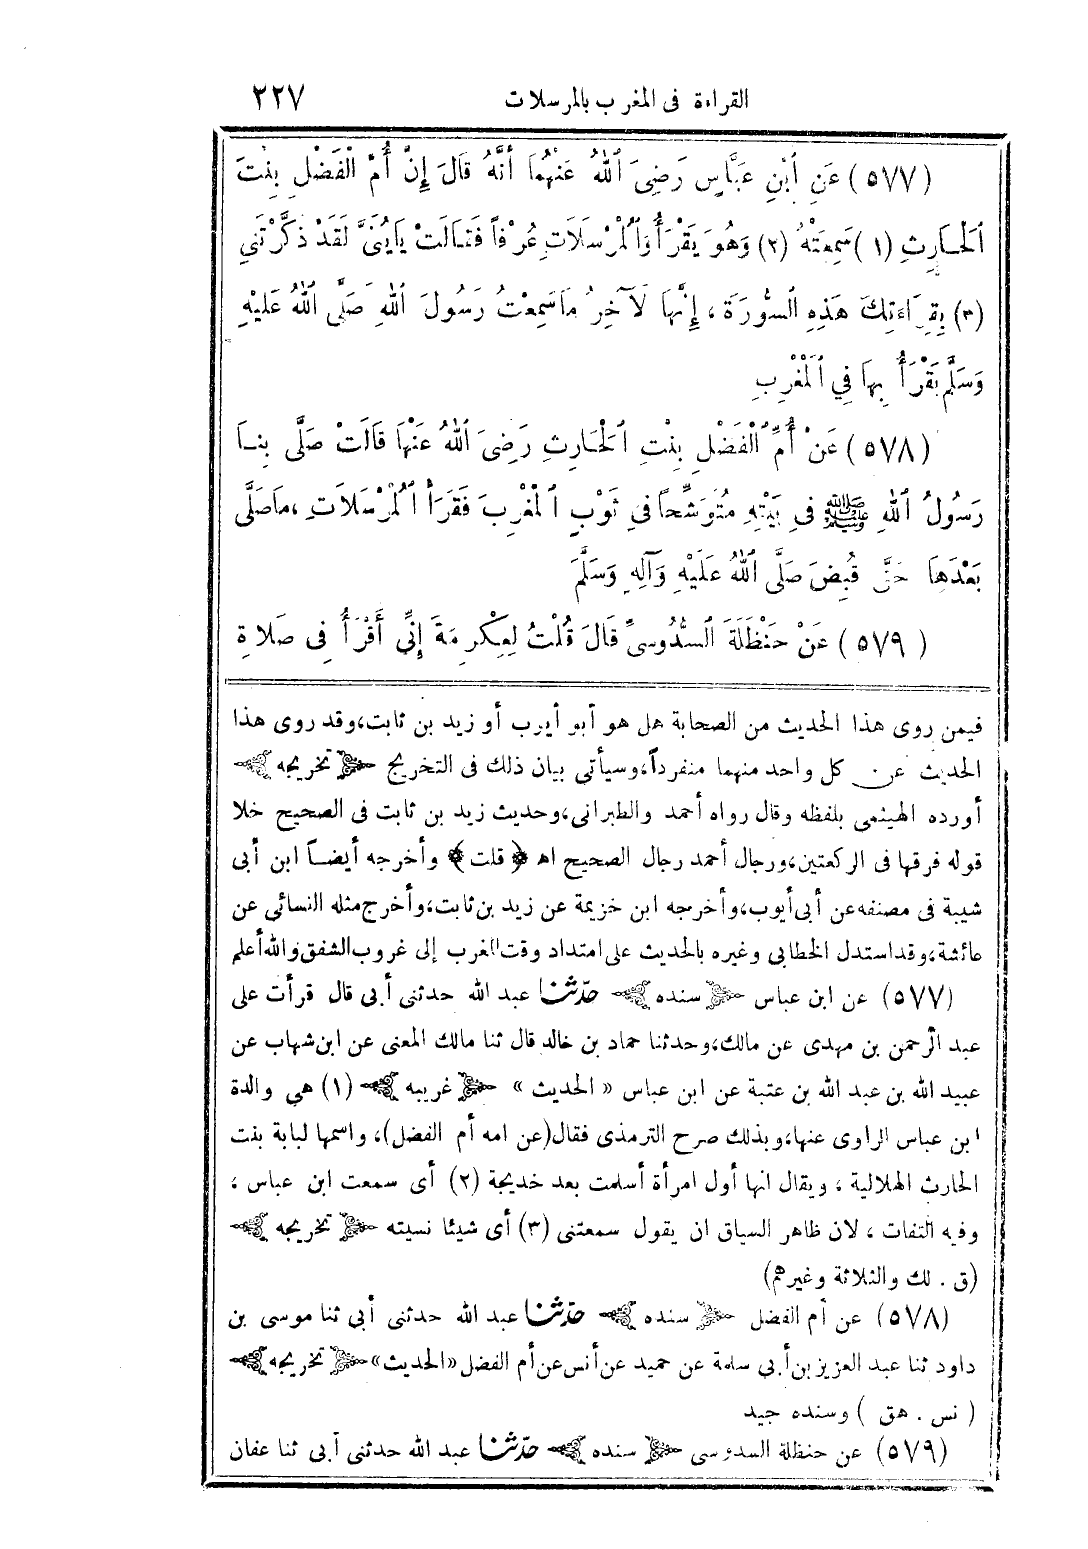 القراءة فى المغرب بالمرسلات ٢٢٧
(٥٧٧) عَنِ ٱبْنِ عَبَّاسٍ رَضِىَ ٱللهُ عَنْهُمَا أَنَّهُ قَالَ إِنَّ أُمَّ الْفَضْلِ بِنْتَ
ٱلْحَارِثِ (١) سَمِعَتْهُ (٢) وَهُوَ يَقْرَأُ وَٱلْمُرْسَلَاتِ عُرْفاً فَقَالَتْ يَابُنَىَّ لَقَدْ ذَكَّرْتَنِي
(٣) بِقِرَاءَتِكَ هَذِهِ السُّورَةَ ، إِنَّهَا لَآخِرُ مَاسَمِعْتُ رَسُولَ ٱللهِ صَلَّى ٱللهُ عَلَيْهِ
وَسَلَّمَ يَقْرَأُ بِهَا فِي ٱلْمَغْرِبِ
(٥٧٨) عَنْ أُمِّ الْفَضْلِ بِنْتِ ٱلْحَارِثِ رَضِىَ ٱللهُ عَنْهَا قَالَتْ صَلَّى بِنَا
رَسُولُ ٱللهِ ﷺ فِى بَيْتِهِ مُتَوَشِّحًا فِي ثَوْبٍ الْمَغْرِبَ فَقَرَأَ ٱلْمُرْسَلَاتِ ،مَاصَلَّى
بَعْدَهَا حَتَّى قُبِضَ صَلَّى ٱللهُ عَلَيْهِ وَآلِهِ وَسَلَّمَ
(٥٧٩) عَنْ حَنْظَلَةَ السَّدُوسِىِّ قَالَ قُلْتُ لِعِكْرِمَةَ إِنِّي أَقْرَأُ فِى صَلَاةِ
فيمن روى هذا الحديث من الصحابة هل هو أبو أيوب أو زيد بن ثابت،وقد روى هذا
الحديث عن كل واحد منهما منفرداً،وسيأتى بيان ذلك فى التخريج ﴿ تخريجه ﴾
أورده الهيثمى بلفظه وقال رواه أحمد والطبرانى،وحديث زيد بن ثابت فى الصحيح خلا
قوله فرقها فى الركعتين،ورجال أحمد رجال الصحيح اه ﴿ قلت ﴾ وأخرجه أيضاً ابن أبى
شيبة فى مصنفه عن أبى أيوب،وأخرجه ابن خزيمة عن زيد بن ثابت،وأخرج مثله النسائي عن
عائشة،وقد استدل الخطابى وغيره بالحديث على امتداد وقت المغرب إلى غروب الشفق والله أعلم
(٥٧٧) عن ابن عباس ﴿ سنده ﴾ حَدَّثَنَا عبد الله حدثنى أبى قال قرأت على
عبد الرحمن بن مهدى عن مالك،وحدثنا حماد بن خالد قال ثنا مالك المعنى عن ابن شهاب عن
عبيد الله بن عبد الله بن عتبة عن ابن عباس « الحديث » ﴿ غريبه ﴾ (١) هي والدة
ابن عباس الراوى عنها،وبذلك صرح الترمذى فقال(عن امه أم الفضل)، واسمها لبابة بنت
الحارث الهلالية ، ويقال انها أول امرأة أسلمت بعد خديجة (٢) أى سمعت ابن عباس ،
وفيه التفات ، لان ظاهر السياق ان يقول سمعتنى (٣) أى شيئا نسيته ﴿ تخريجه ﴾
(ق . لك والثلاثة وغيرهم)
(٥٧٨) عن أم الفضل ﴿ سنده ﴾ حَدَّثَنَا عبد الله حدثنى أبى ثنا موسى بن
داود ثنا عبد العزيز بن أبى سلمة عن حميد عن أنس عن أم الفضل «الحديث» ﴿ تخريجه ﴾
( نس . هق ) وسنده جيد
(٥٧٩) عن حنظلة السدوسى ﴿ سنده ﴾ حَدَّثَنَا عبد الله حدثنى أبى ثنا عفان